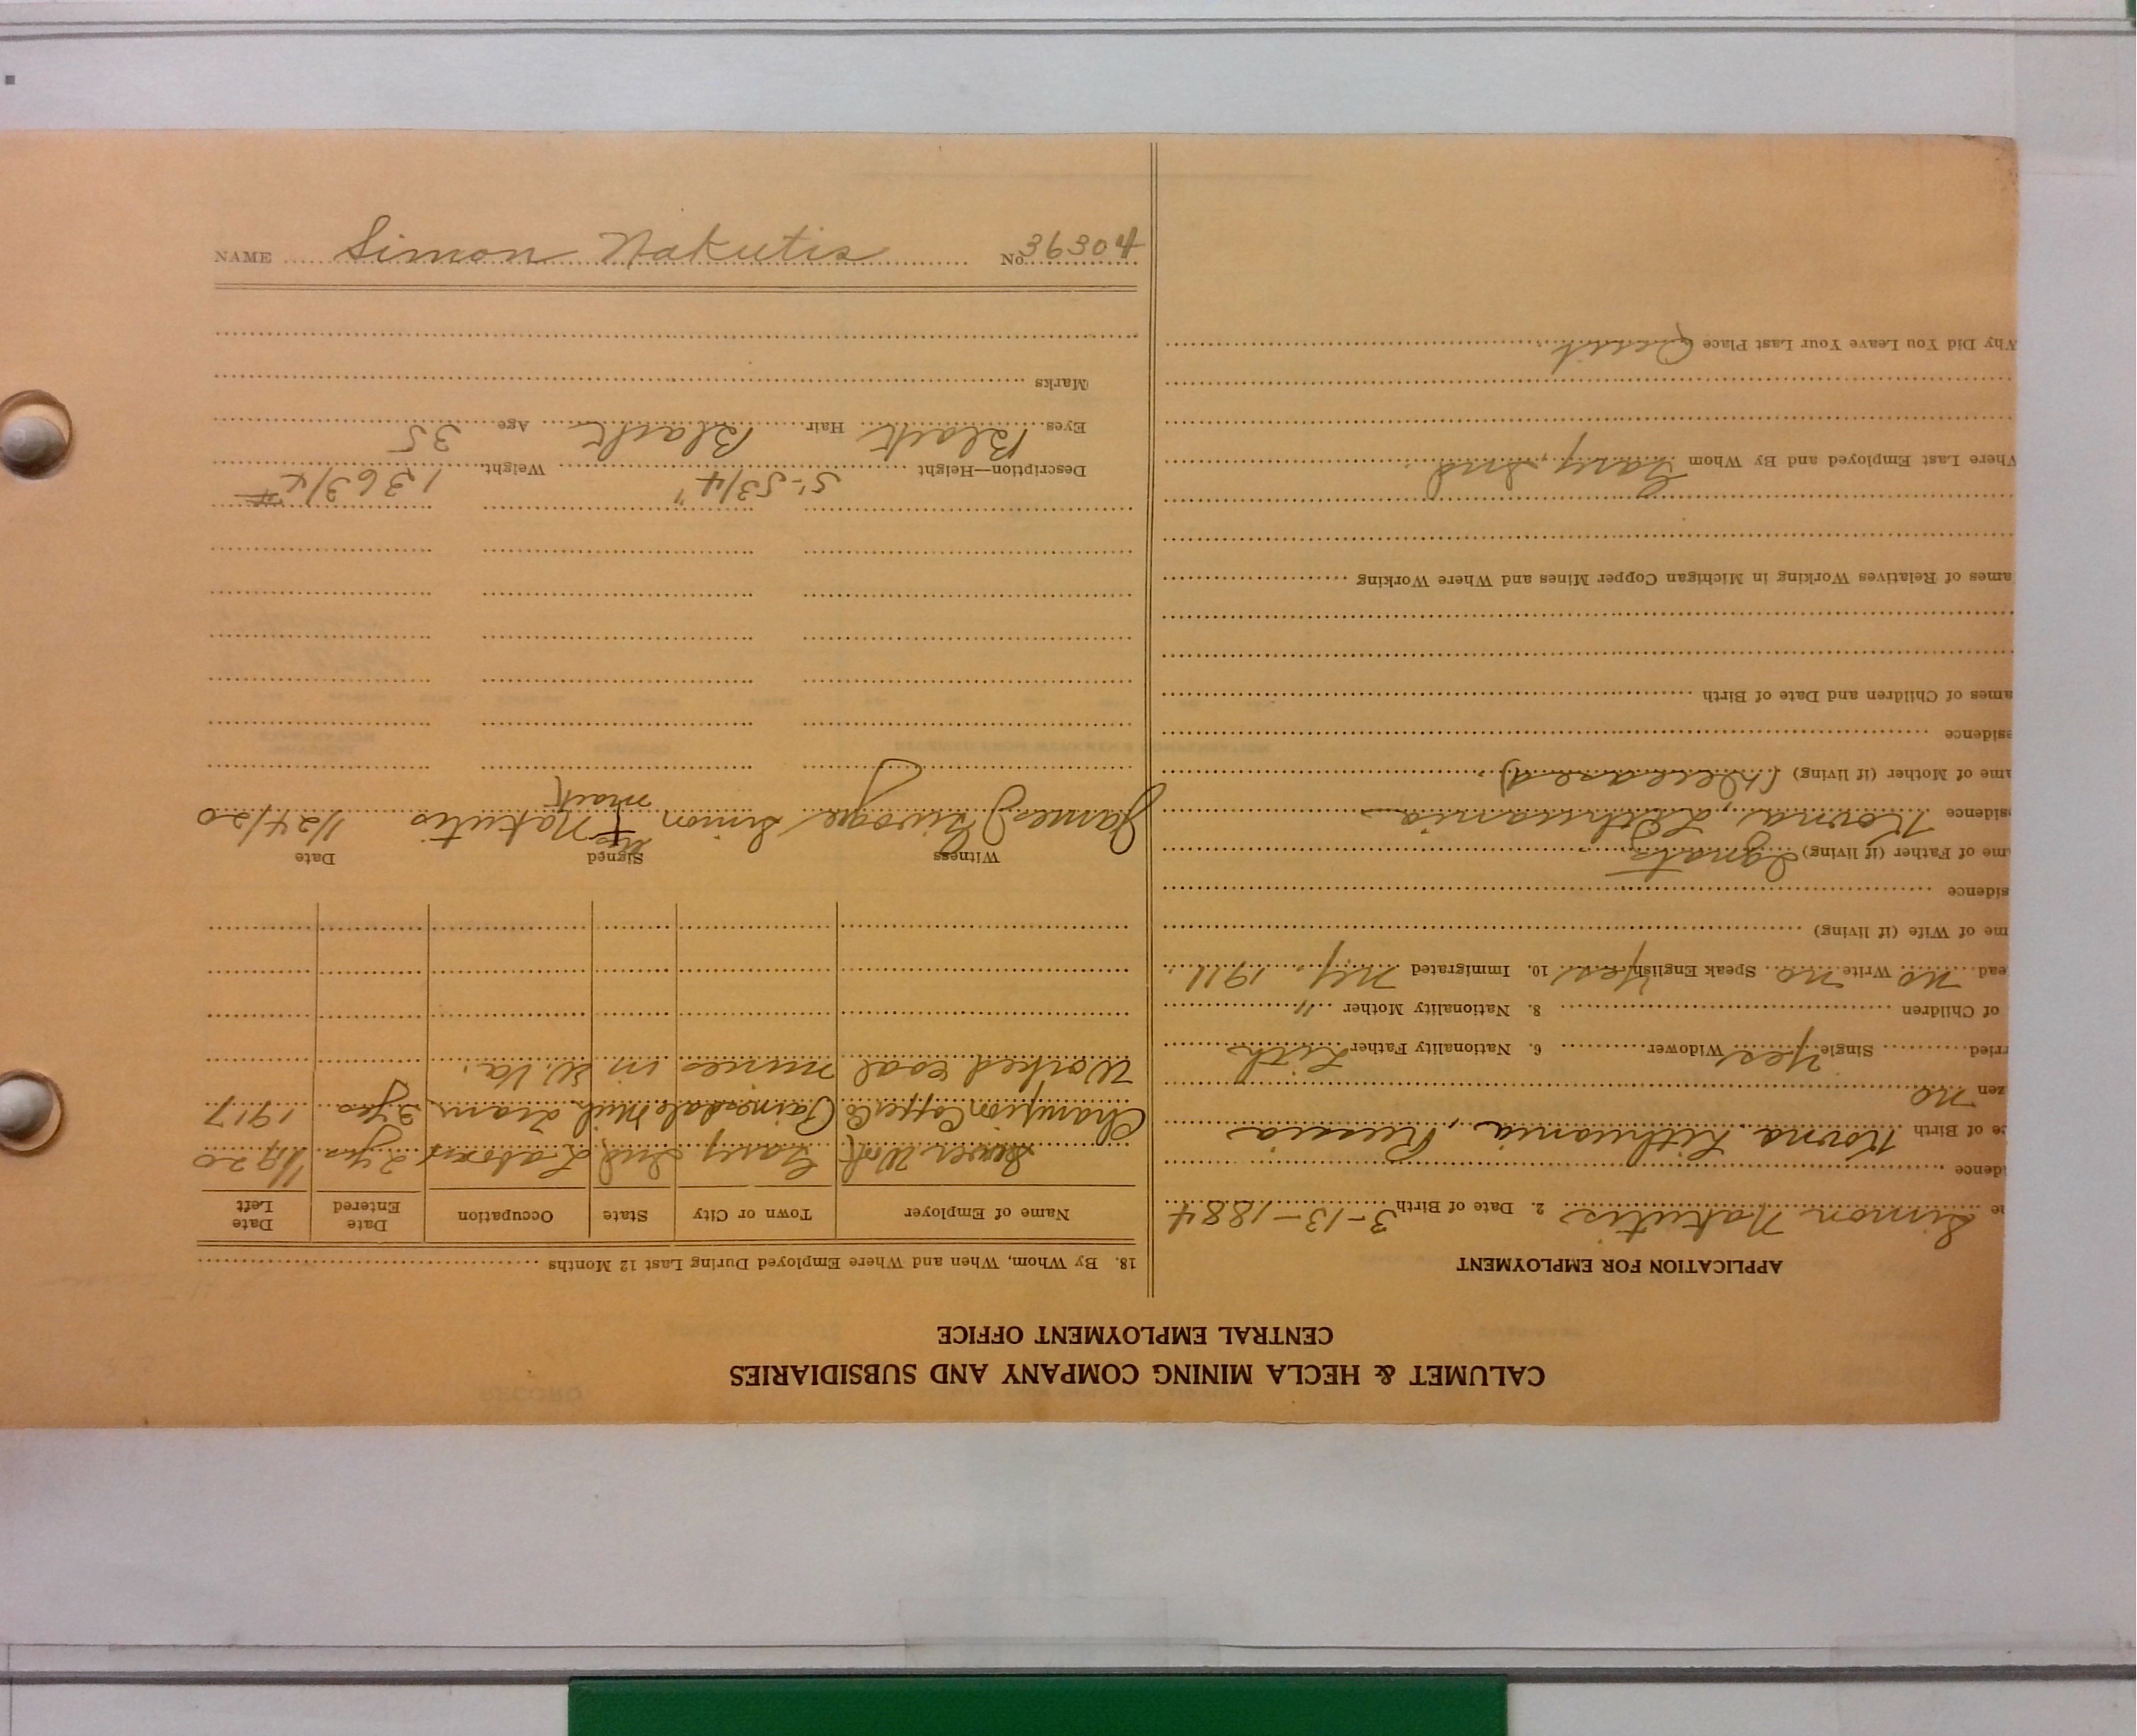 CALUMET & HECLA MINING COMPANY AND SUBSIDIARIES
CENTRAL EMPLOYMENT OFFICE
APPLICATION FOR EMPLOYMENT
me Simon Nakutis 2. Date of Birth 3-13-1884
idence
ce of Birth Kovna Lithuania, Russia
zen no
rried Single Yes Widower 6. Nationality Father Lith
of Children 8. Nationality Mother "
ead no Write no Speak English Yes 10. Immigrated N.Y. 1911
me of Wife (if living)
sidence
me of Father (if living) Ignats
sidence Kovna, Lithuania
ame of Mother (if living) (Deceased)
esidence
ames of Children and Date of Birth
ames of Relatives Working in Michigan Copper Mines and Where Working
Where Last Employed and By Whom Gary, Ind
Why Did You Leave Your Last Place Quit
18. By Whom, When and Where Employed During Last 12 Months
Name of Employer Town or City State Occupation Date Entered Date Left
Sewer Work Gary Ind Laborer 2 yrs 1/1920
Champion Copper Co Painesdale Mich Tram 3 yrs 1917
Worked coal mines in W.Va.
Witness Signed Date
James Simon his + mark Nakutis 1/24/20
Description—Height 5'-5 3/4" Weight 136 3/4 #
Eyes Black Hair Black Age 35
Marks
NAME Simon Nakutis No. 36304